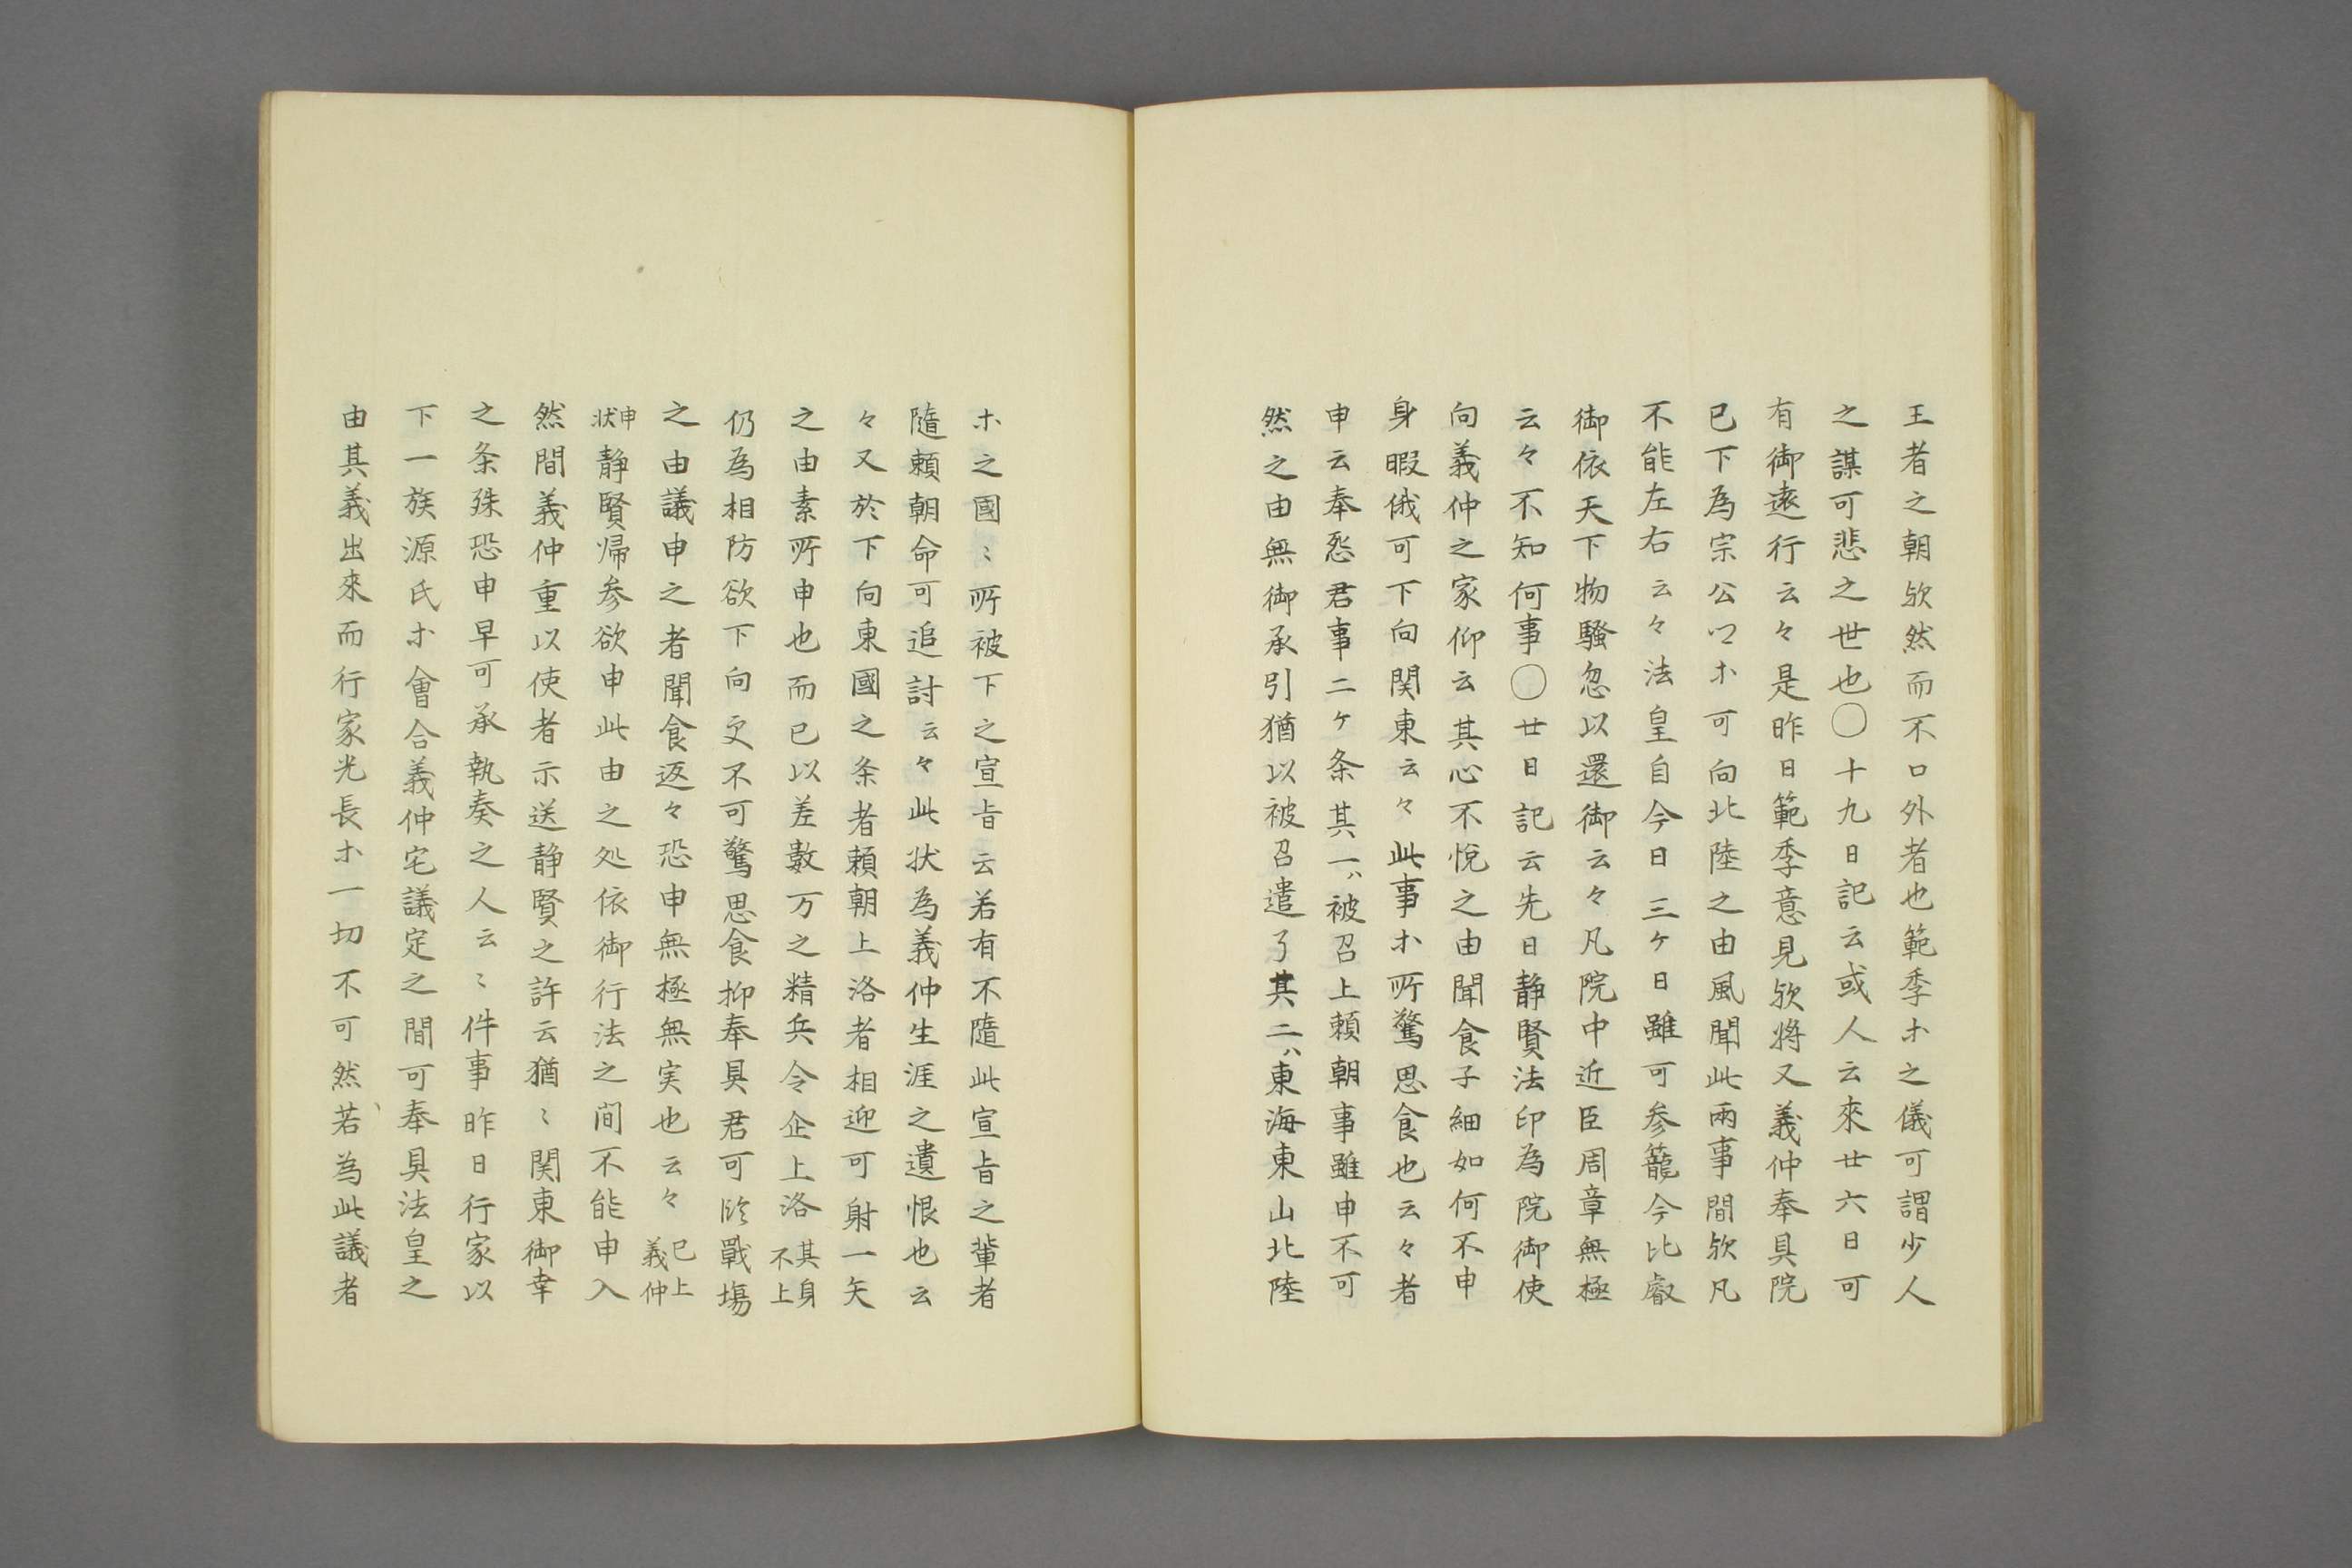 王者之朝欤然而不口外者也範季ホ之儀可謂少人
之謀可悲之世也〇十九日記云或人云來廿六日可
有御遠行云々是昨日範季意見欤将又義仲奉具院
已下為宗公卿ホ可向北陸之由風聞此兩事間欤凡
不能左右云々法皇自今日三ケ日雖可参籠今比叡
御依天下物騒忽以還御云々凡院中近臣周章無極
云々不知何事〇廿日記云先日静賢法印為院御使
向義仲之家仰云其心不悅之由聞食子細如何不申
身暇俄可下向関東云々此事ホ所驚思食也云々者
申云奉恐君事二ケ条其一ハ被召上頼朝事雖申不可
然之由無御承引猶以被召遣了其二ハ東海東山北陸
ホ之國〻所被下之宣旨云若有不隨此宣旨之輩者
隨頼朝命可追討云々此状為義仲生涯之遺恨也云
々又於下向東國之条者頼朝上洛者相迎可射一矢
之由素所申也而已以差數万之精兵令企上洛其身不上
仍為相防欲下向更不可驚思食抑奉具君可臨戰場
之由議申之者聞食返々恐申無極無実也云々已上義仲
申状静賢帰参欲申此由之処依御行法之间不能申入
然間義仲重以使者示送静賢之許云猶〻関東御幸
之条殊恐申早可承執奏之人云〻件事昨日行家以
下一族源氏ホ會合義仲宅議定之間可奉具法皇之
由其義出來而行家光長ホ一切不可然若為此議者